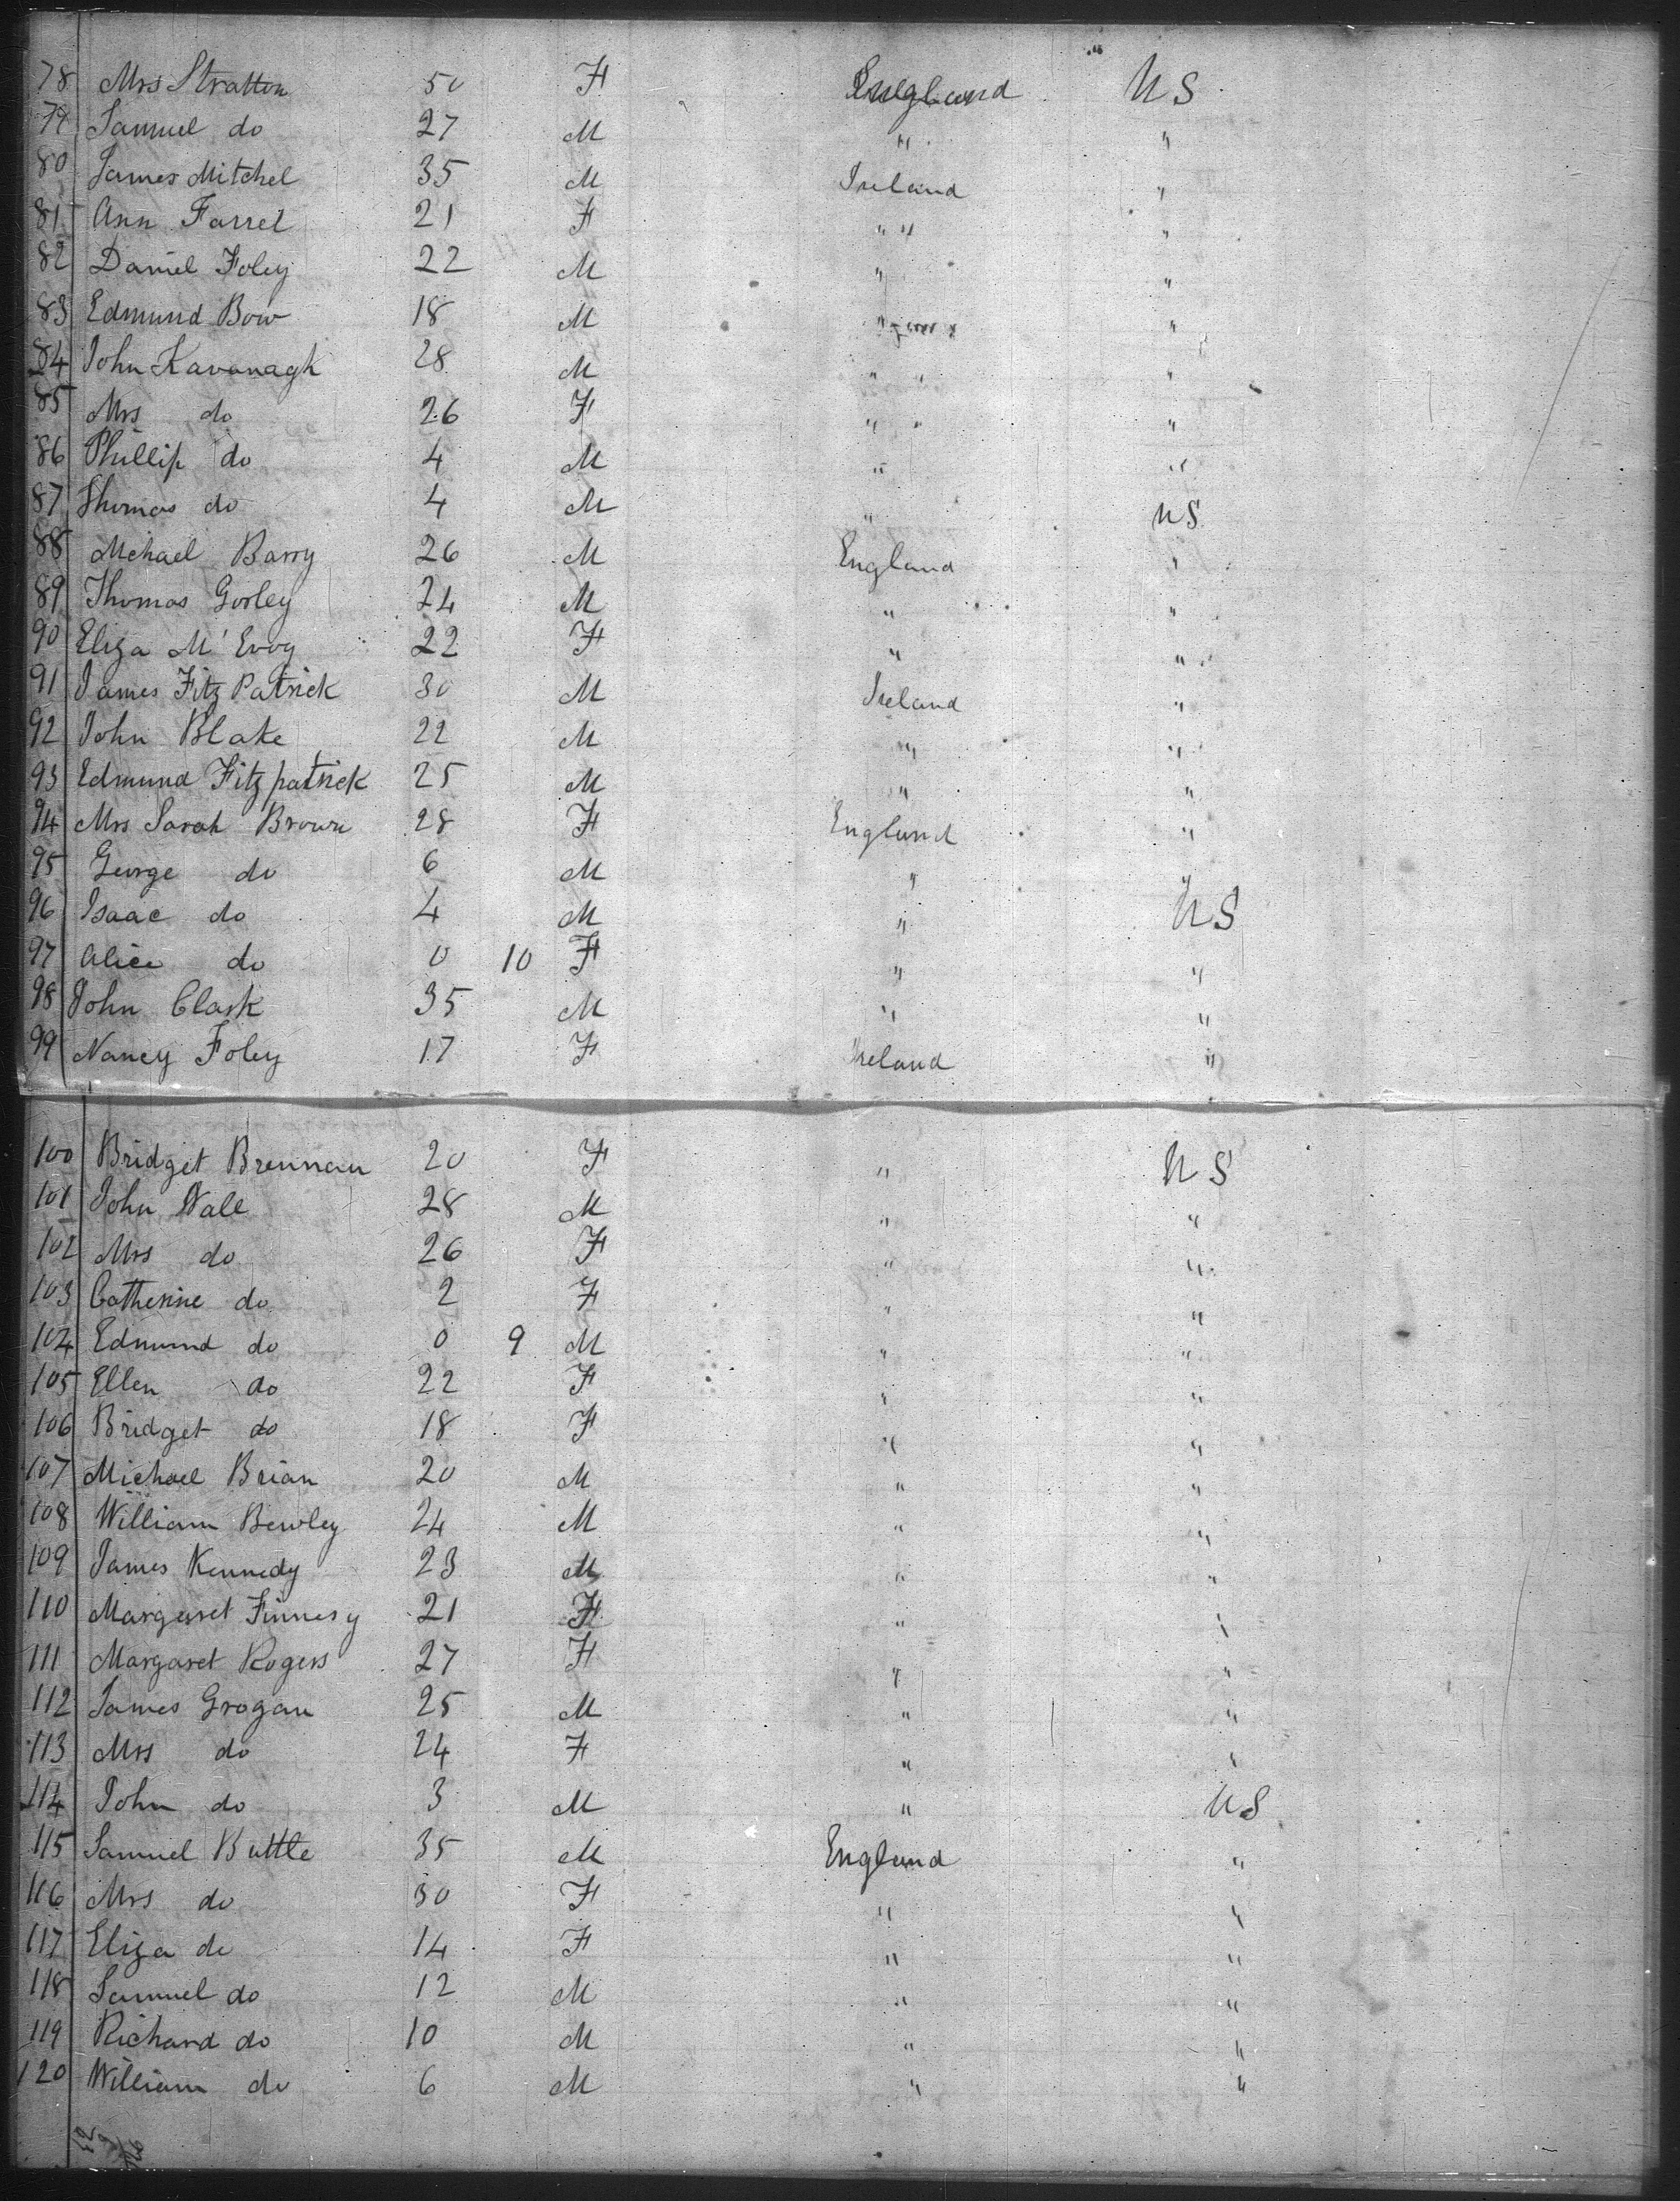 78 Mrs Stratton 50 F England US
79 Samuel do 27 M " "
80 James Mitchel 35 M Ireland "
81 Ann Farrel 21 F " " "
82 Daniel Foley 22 M " "
83 Edmund Bow 18 M " "
84 John Kavanagh 28 M " " "
85 Mrs do 26 F " " "
86 Phillip do 4 M " "
87 Thomas do 4 M " US
88 Mchael Barry 26 M England "
89 Thomas Gorley 24 M " "
90 Eliza M'Evoy 22 F " "
91 James Fitz Patrick 30 M Ireland "
92 John Blake 22 M " "
93 Edmund Fitzpatrick 25 M " "
94 Mrs Sarah Brown 28 F England "
95 George do 6 M " "
96 Isaac do 4 M " US
97 Alice do 0 10 F " "
98 John Clark 35 M " "
99 Nancy Foley 17 F Ireland "
100 Bridget Brennan 20 F " US
101 John Nale 28 M " "
102 Mrs do 26 F " "
103 Catherine do 2 F " "
104 Edmund do 0 9 M " "
105 Ellen do 22 F " "
106 Bridget do 18 F " "
107 Michael Brian 20 M " "
108 William Bewley 24 M " "
109 James Kennedy 23 M " "
110 Margaret Finnesy 21 F " "
111 Margaret Rogers 27 F " "
112 James Grogan 25 M " "
113 Mrs do 24 F " "
114 John do 3 M " US
115 Samuel Buttle 35 M England "
116 Mrs do 30 F " "
117 Eliza do 14 F " "
118 Samuel do 12 M " "
119 Richard do 10 M " "
120 William do 6 M " "